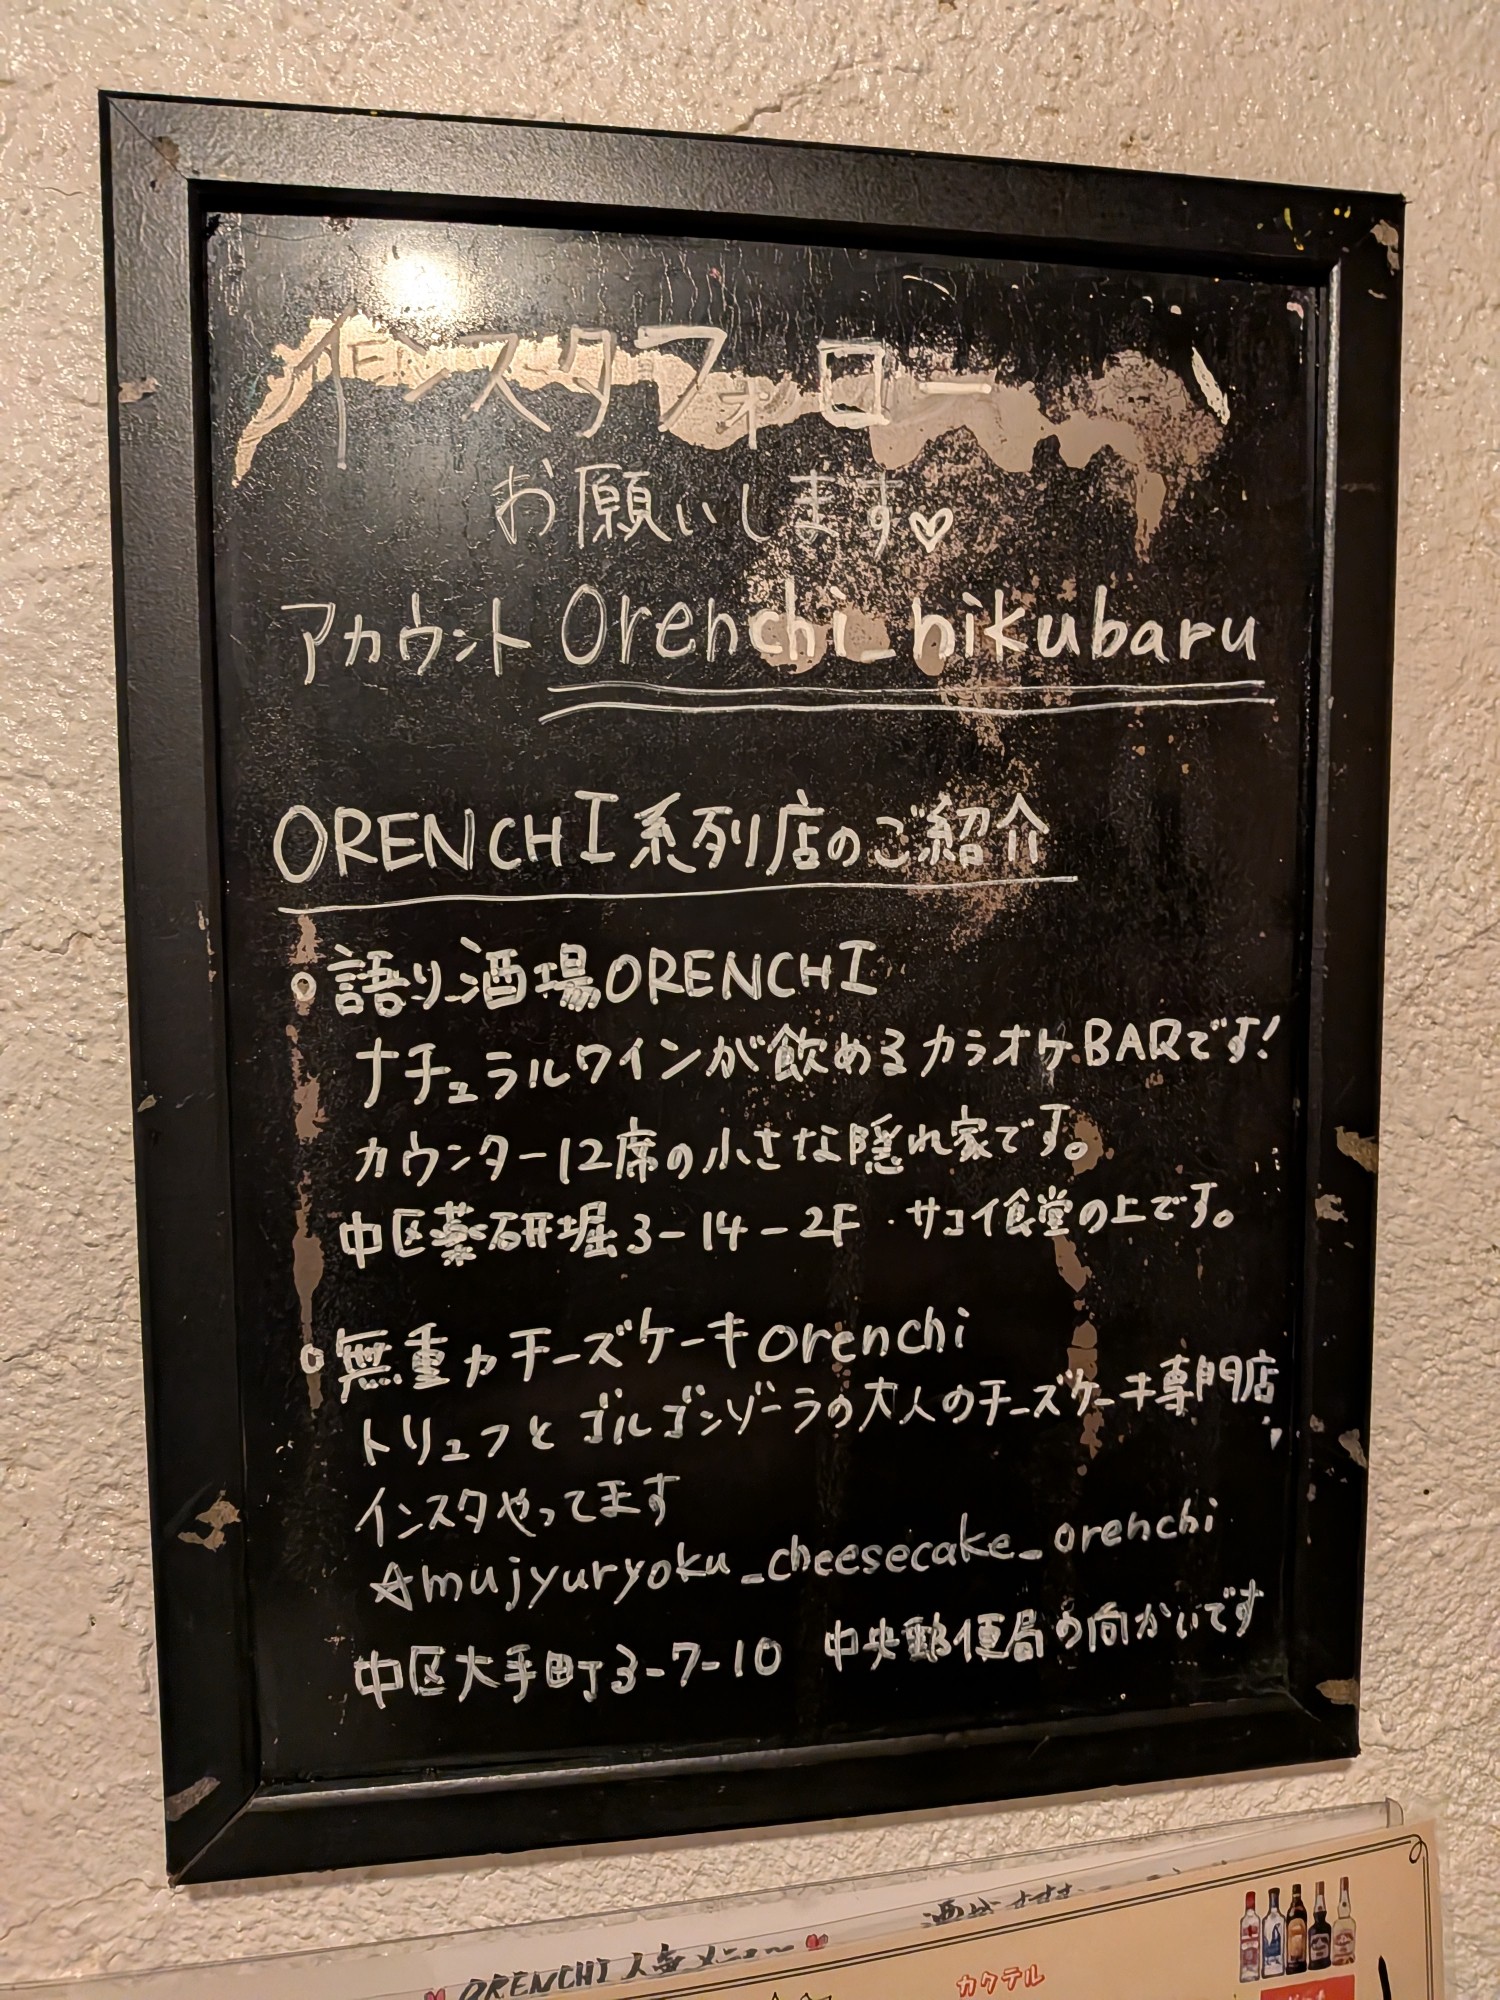 インスタフォロー
お願いします♡
アカウント Orenchi_nikubaru
ORENCHI系列店のご紹介
○語り酒場ORENCHI
ナチュラルワインが飲めるカラオケBARです!
カウンター12席の小さな隠れ家です。
中区薬研堀3-14-2F・サコイ食堂の上です。
○無重力チーズケーキorenchi
トリュフとゴルゴンゾーラの大人のチーズケーキ専門店
インスタやってます
☆mujyuryoku_cheesecake_orenchi
中区大手町3-7-10 中央郵便局の向かいです
ORENCHI 人気メニュー
カクテル